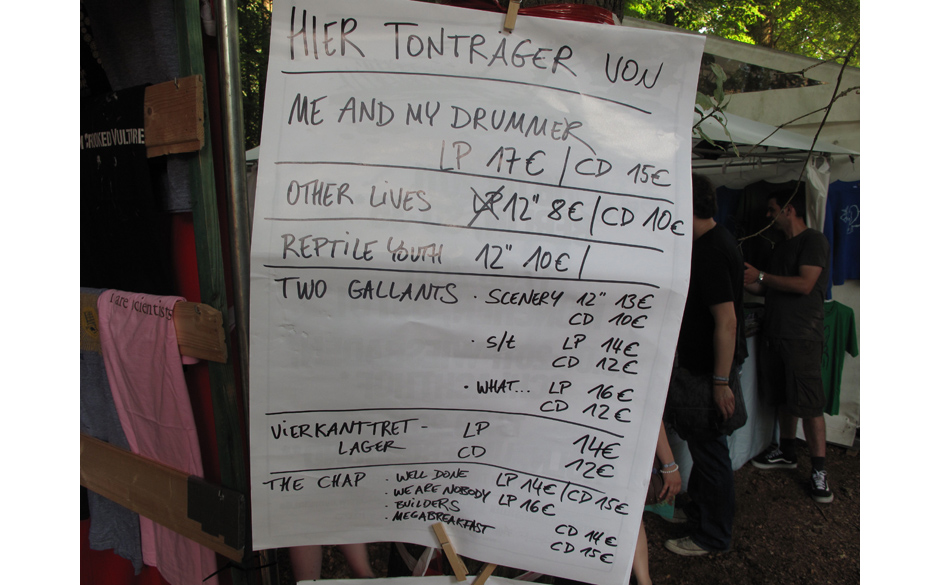 HIER TONTRÄGER VON
ME AND MY DRUMMER
LP 17€ / CD 15€
OTHER LIVES 12" 8€ / CD 10€
REPTILE YOUTH 12" 10€ /
TWO GALLANTS · SCENERY 12" 13€
CD 10€
· s/t LP 14€
CD 12€
· WHAT... LP 16€
CD 12€
VIERKANTTRET- LP 14€
LAGER CD 12€
THE CHAP · WELL DONE LP 14€ / CD 15€
· WE ARE NOBODY LP 16€
· BUILDERS CD 14€
· MEGABREAKFAST CD 15€
CROOKED VULTURE
are scientists